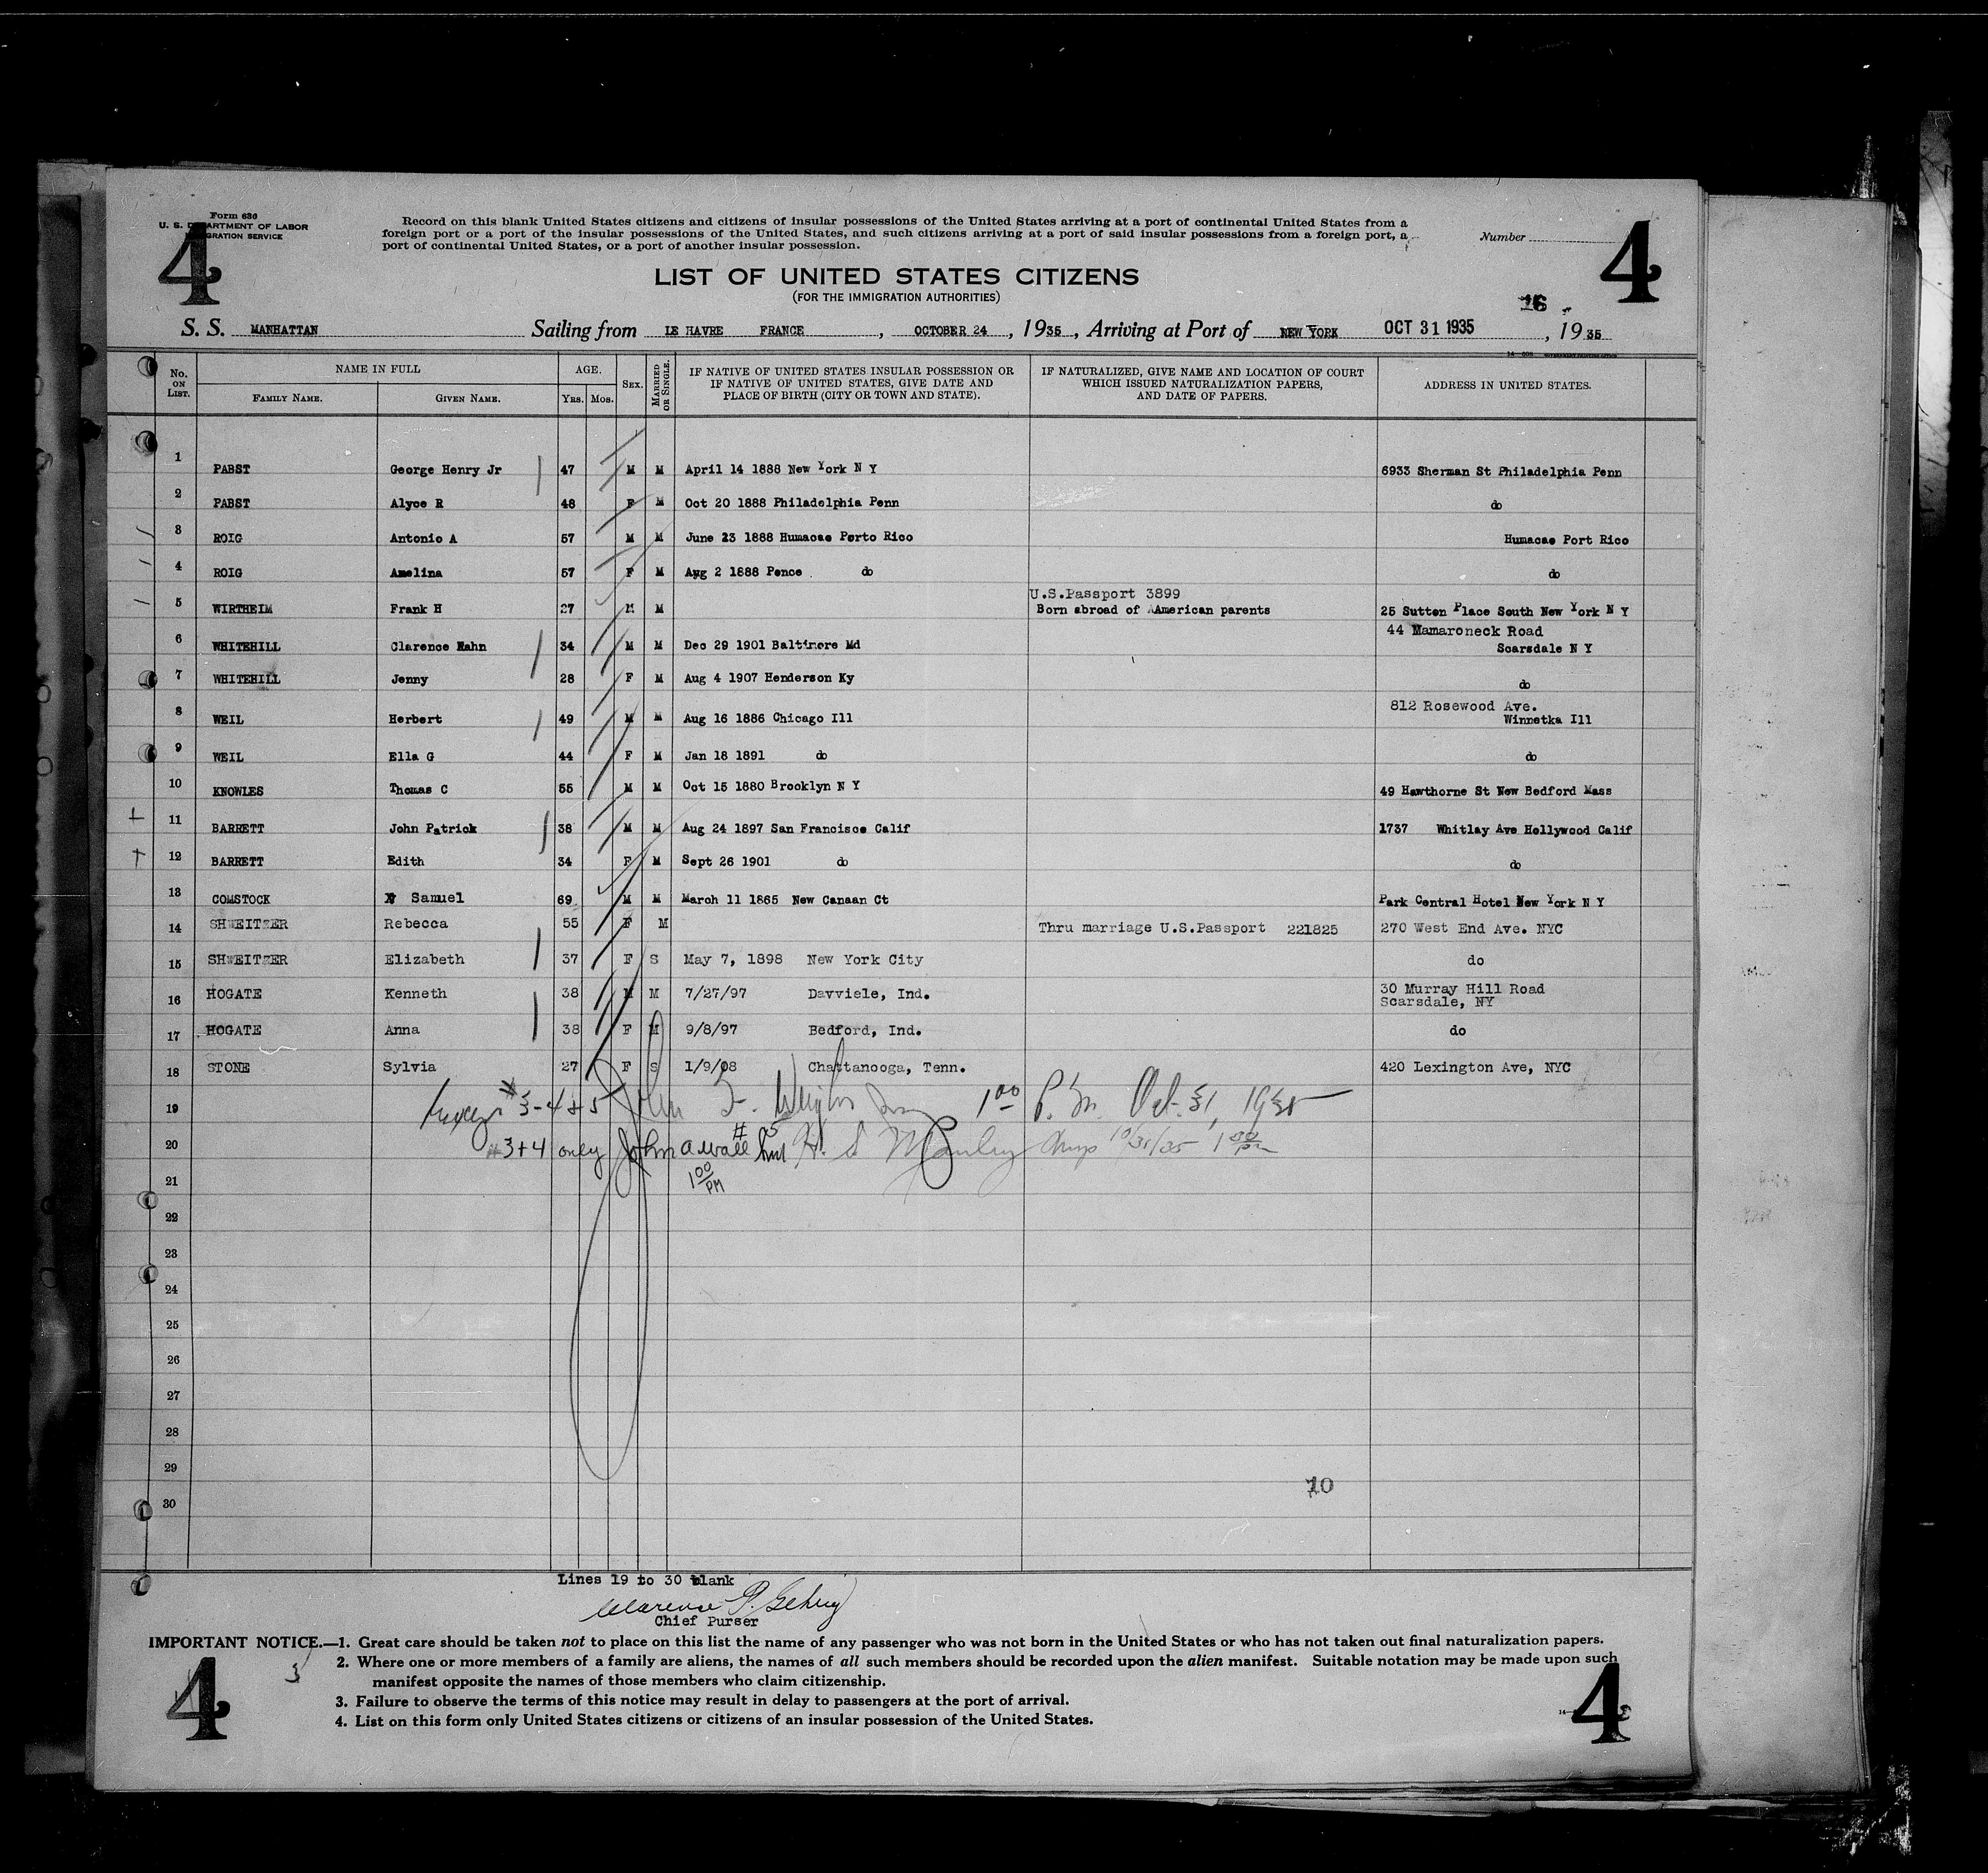 Form 636
U. S. DEPARTMENT OF LABOR
IMMIGRATION SERVICE
4
Record on this blank United States citizens and citizens of insular possessions of the United States arriving at a port of continental United States from a
foreign port or a port of the insular possessions of the United States, and such citizens arriving at a port of said insular possessions from a foreign port, a
port of continental United States, or a port of another insular possession.
Number
4
LIST OF UNITED STATES CITIZENS
(FOR THE IMMIGRATION AUTHORITIES)
16
S. S. MANHATTAN Sailing from LE HAVRE FRANCE, OCTOBER 24, 1935, Arriving at Port of NEW YORK OCT 31 1935, 1935
No. ON LIST. NAME IN FULL FAMILY NAME. GIVEN NAME. AGE. YRS. MOS. SEX. MARRIED OR SINGLE. IF NATIVE OF UNITED STATES INSULAR POSSESSION OR IF NATIVE OF UNITED STATES, GIVE DATE AND PLACE OF BIRTH (CITY OR TOWN AND STATE). IF NATURALIZED, GIVE NAME AND LOCATION OF COURT WHICH ISSUED NATURALIZATION PAPERS, AND DATE OF PAPERS. ADDRESS IN UNITED STATES.
1 PABST George Henry Jr 47 M M April 14 1888 New York N Y 6933 Sherman St Philadelphia Penn
2 PABST Alyce R 48 F M Oct 20 1888 Philadelphia Penn do
3 ROIG Antonio A 57 M M June 23 1888 Humacae Porto Rico Humacae Port Rico
4 ROIG Amelina 57 F M Aug 2 1888 Ponce do do
5 WIRTHEIM Frank H 27 M M U.S.Passport 3899 Born abroad of American parents 25 Sutton Place South New York N Y
6 WHITEHILL Clarence Hahn 34 M M Dec 29 1901 Baltimore Md 44 Mamaroneck Road Scarsdale N Y
7 WHITEHILL Jenny 28 F M Aug 4 1907 Henderson Ky do
8 WEIL Herbert 49 M M Aug 16 1886 Chicago Ill 812 Rosewood Ave. Winnetka Ill
9 WEIL Ella G 44 F M Jan 18 1891 do do
10 KNOWLES Thomas C 55 M M Oct 15 1880 Brooklyn N Y 49 Hawthorne St New Bedford Mass
11 BARRETT John Patrick 38 M M Aug 24 1897 San Francisco Calif 1737 Whitlay Ave Hollywood Calif
12 BARRETT Edith 34 F M Sept 26 1901 do do
13 COMSTOCK Samuel 69 M M March 11 1865 New Canaan Ct Park Central Hotel New York N Y
14 SHWEITZER Rebecca 55 F M Thru marriage U.S.Passport 221825 270 West End Ave. NYC
15 SHWEITZER Elizabeth 37 F S May 7, 1898 New York City do
16 HOGATE Kenneth 38 M M 7/27/97 Davviele, Ind. 30 Murray Hill Road Scarsdale, NY
17 HOGATE Anna 38 F M 9/8/97 Bedford, Ind. do
18 STONE Sylvia 27 F S 1/9/08 Chattanooga, Tenn. 420 Lexington Ave, NYC
19 # 3-4 & 5 John 1 00 P. M. Oct. 31, 1935
20 #3+4 only John A Wall # 5 H. S 10/31/35 1 00 pm
21 1 00 PM
22
23
24
25
26
27
28
29
10
30
Lines 19 to 30 blank
Clarence P. Gehrig
Chief Purser
IMPORTANT NOTICE.—1. Great care should be taken not to place on this list the name of any passenger who was not born in the United States or who has not taken out final naturalization papers.
2. Where one or more members of a family are aliens, the names of all such members should be recorded upon the alien manifest. Suitable notation may be made upon such
manifest opposite the names of those members who claim citizenship.
3. Failure to observe the terms of this notice may result in delay to passengers at the port of arrival.
4. List on this form only United States citizens or citizens of an insular possession of the United States.
4
3
4